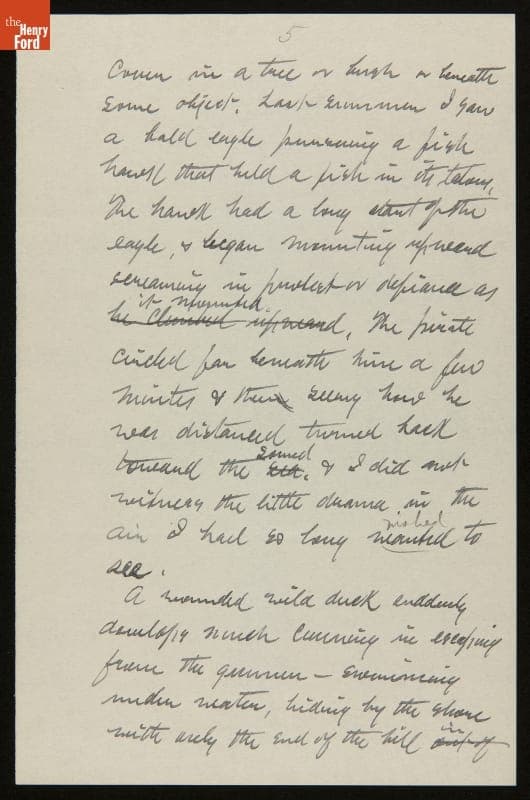 the
Henry
Ford
5
cover in a tree or bush or beneath
some object. Last summer I saw
a bald eagle pursuing a fish
hawk that held a fish in its talons.
The hawk had a long start of the
eagle, & began mounting upward
screaming in protest or defiance as
it mounted.
he climbed upward. The pirate
circled far beneath him a few
minutes & then seeing how he
was distanced turned back
toward the sea. & I did not
witness the little drama in the
air I had so long wanted to
wished
see.
A wounded wild duck suddenly
develops much cunning in escaping
from the gunner – swimming
under water, hiding by the shore
with only the end of the bill out of
in